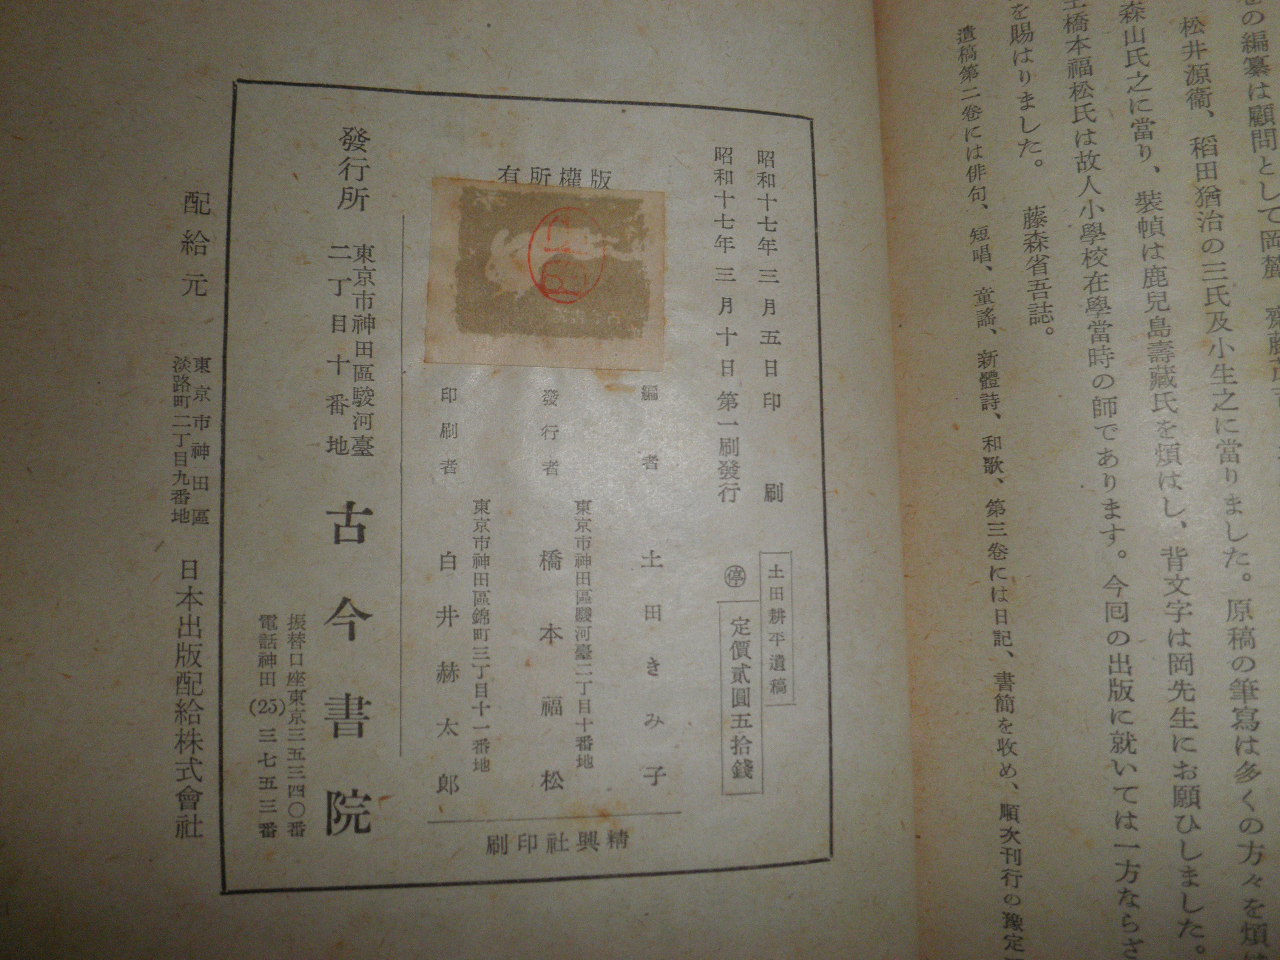 の編纂は顧問として岡麓
松井源衞、稻田猶治の三氏及小生之に當りました。原稿の筆寫は多くの方々を煩は
森山氏之に當り、裝幀は鹿兒島壽藏氏を煩はし、背文字は岡先生にお願ひしました。
橋本福松氏は故人小學校在學當時の師であります。今囘の出版に就いては一方ならざ
を賜はりました。 藤森省吾誌。
遺稿第二卷には俳句、短唱、童謠、新體詩、和歌、第三卷には日記、書簡を收め、順次刊行の豫定
昭和十七年三月五日印刷
昭和十七年三月十日第一刷發行
土田耕平遺稿
停 定價貳圓五拾錢
版權所有
編者 土田きみ子
東京市神田區駿河臺二丁目十番地
發行者 橋本福松
東京市神田區錦町三丁目十一番地
印刷者 白井赫太郎
精興社印刷
發行所
東京市神田區駿河臺
二丁目十番地
古今書院
振替口座東京三五三四〇番
電話神田(25)三七五三番
配給元
東京市神田區
淡路町二丁目九番地
日本出版配給株式會社